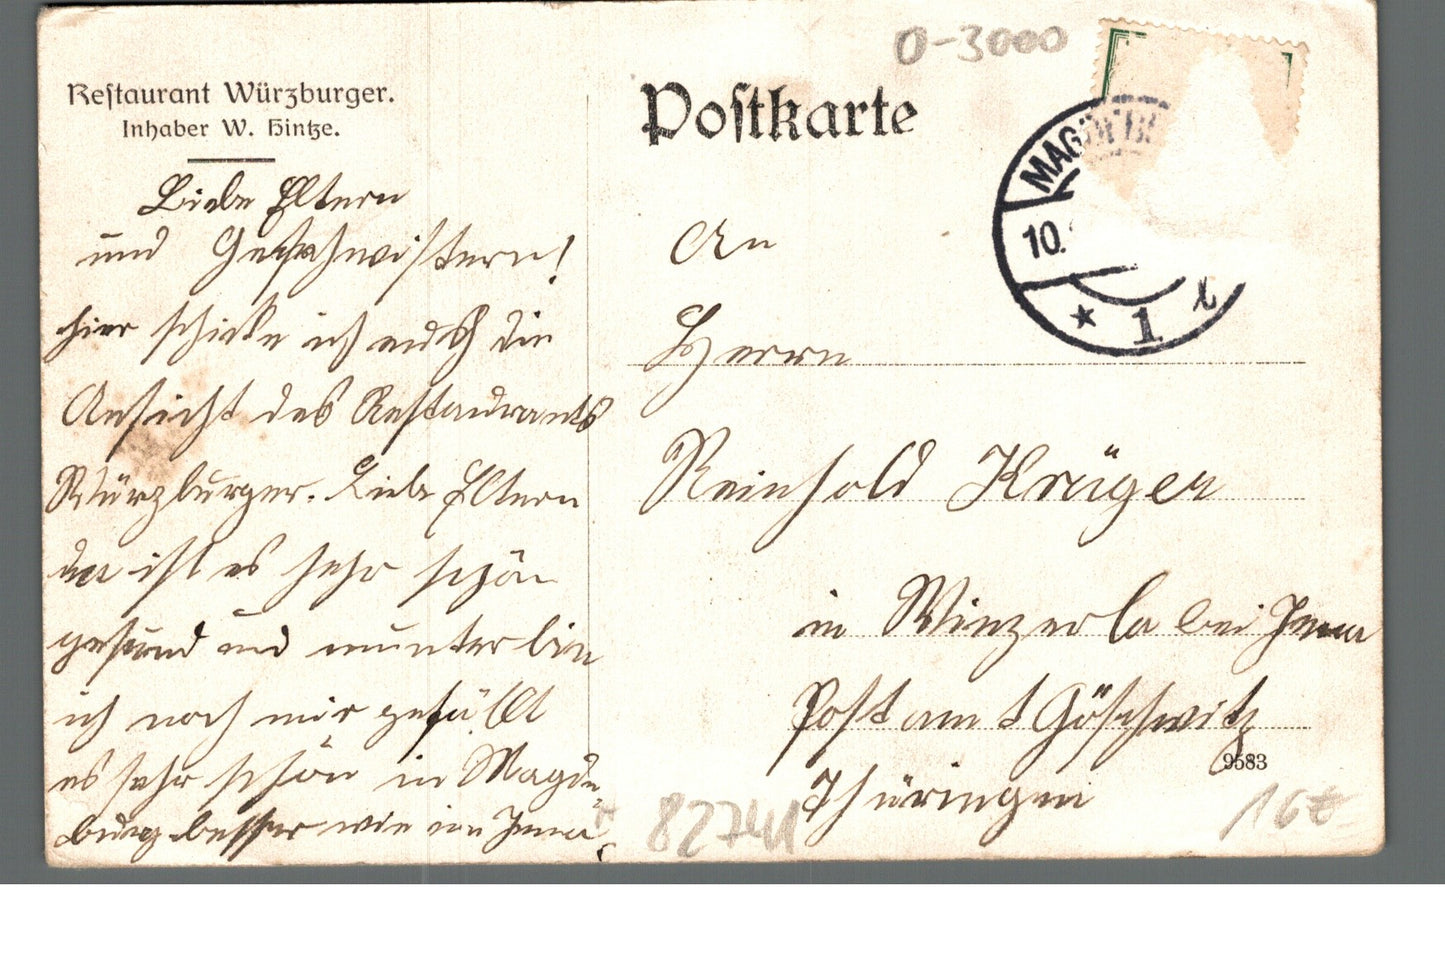 Restaurant Würzburger.
Inhaber W. Hintze.
Liebe Eltern
und Geschwistern!
hier schicke ich euch die
Ansicht des Restaurants
Würzburger. Liebe Eltern
da ist es sehr schön
gesund und munter bin
ich noch mir gefällt
es sehr schön in Magde-
burg besser wie in Jena
Postkarte
0-3000
MAGDEB
10.
* 1 t
An
Herrn
Reinhold Krüger
in Winzerla bei Jena
Postamt Göschwitz
Thüringen
9583
82741
16